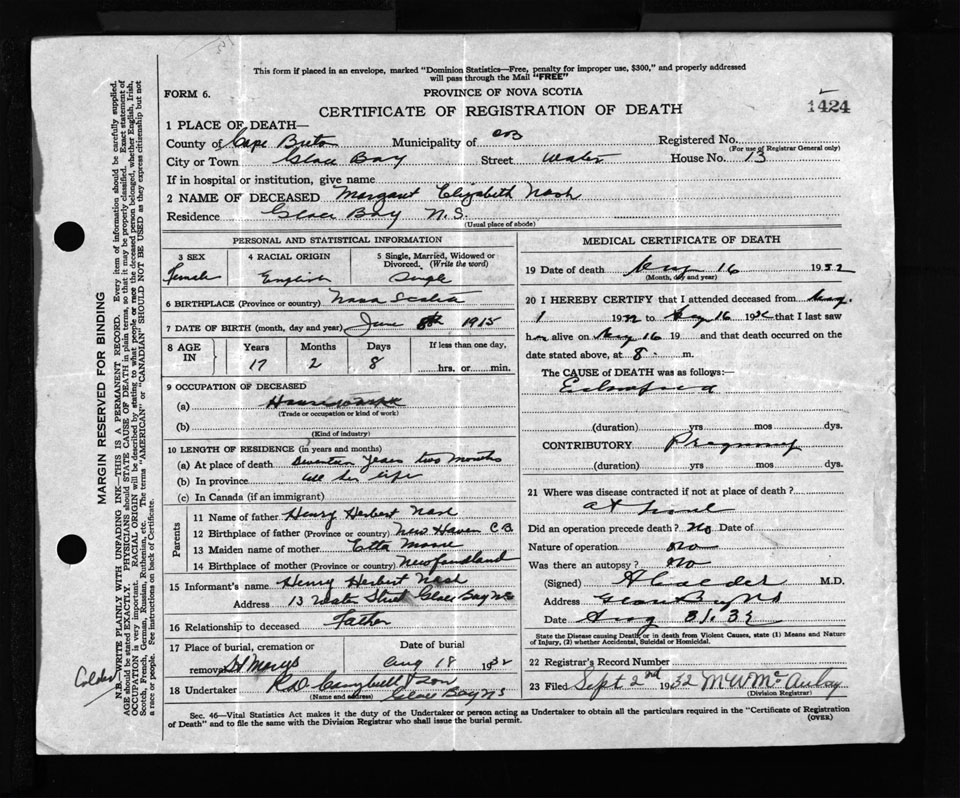 This form if placed in an envelope, marked "Dominion Statistics—Free, penalty for improper use, $300," and properly addressed
will pass through the Mail "FREE"
FORM 6.
PROVINCE OF NOVA SCOTIA
CERTIFICATE OF REGISTRATION OF DEATH
1424
1 PLACE OF DEATH—
County of Cape Breton Municipality of CB Registered No.
(For use of Registrar General only)
City or Town Glace Bay Street Water House No. 13
If in hospital or institution, give name
2 NAME OF DECEASED Margaret Elizabeth Nash
Residence Glace Bay N.S.
(Usual place of abode)
PERSONAL AND STATISTICAL INFORMATION
3 SEX Female
4 RACIAL ORIGIN English
5 Single, Married, Widowed or Divorced. (Write the word) Single
6 BIRTHPLACE (Province or country) Nova Scotia
7 DATE OF BIRTH (month, day and year) June 8th 1915
8 AGE IN Years Months Days If less than one day,
17 2 8 hrs. or min.
9 OCCUPATION OF DECEASED
(a)
(Trade or occupation or kind of work)
(b)
(Kind of industry)
10 LENGTH OF RESIDENCE (in years and months)
(a) At place of death Seventeen Years two months
(b) In province all her life
(c) In Canada (if an immigrant)
Parents
11 Name of father Henry Herbert Nash
12 Birthplace of father (Province or country) New Haven C.B.
13 Maiden name of mother Etta Moore
14 Birthplace of mother (Province or country) Newfoundland
15 Informant's name Henry Herbert Nash
Address 13 Water Street Glace Bay NS
16 Relationship to deceased Father
17 Place of burial, cremation or removal St Marys Date of burial Aug 18 1932
18 Undertaker Campbell & Son
(Name and address) Glace Bay NS
MEDICAL CERTIFICATE OF DEATH
19 Date of death Aug 16 1932
(Month, day and year)
20 I HEREBY CERTIFY that I attended deceased from Aug.
1 1932 to Aug 16 1932 that I last saw
her alive on Aug 16 19 and that death occurred on the
date stated above, at 8 m.
The CAUSE of DEATH was as follows:
(duration) yrs mos dys.
CONTRIBUTORY Pregnancy
(duration) yrs mos dys.
21 Where was disease contracted if not at place of death?
at home
Did an operation precede death? No Date of
Nature of operation no
Was there an autopsy? no
(Signed) A Calder M.D.
Address Glace Bay NS
Date Aug 31. 32
State the Disease causing Death, or in death from Violent Causes, state (1) Means and Nature
of Injury, (2) whether Accidental, Suicidal or Homicidal.
22 Registrar's Record Number
23 Files Sept 2nd 1932 McAulay
(Division Registrar)
Sec. 46—Vital Statistics Act makes it the duty of the Undertaker or person acting as Undertaker to obtain all the particulars required in the "Certificate of Registration
of Death" and to file the same with the Division Registrar who shall issue the burial permit.
(OVER)
MARGIN RESERVED FOR BINDING
N.B.—WRITE PLAINLY WITH UNFADING INK—THIS IS A PERMANENT RECORD. Every item of information should be carefully supplied.
AGE should be stated EXACTLY. PHYSICIANS should STATE CAUSE OF DEATH in plain terms, so that it may be properly classified. Exact statement of
OCCUPATION is very important. RACIAL ORIGIN will be described by stating to what people or race the deceased person belonged, whether English, Irish,
Scotch, French, German, Russian, Ruthenian, etc. The terms "AMERICAN" or "CANADIAN" SHOULD NOT BE USED as they express citizenship but not
a race or people. See instructions on back of Certificate.
Calder